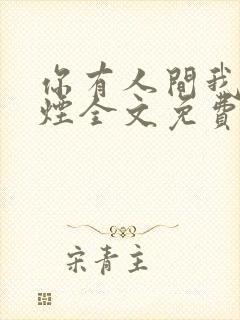 你有人間我
煙全文免費
宋青主